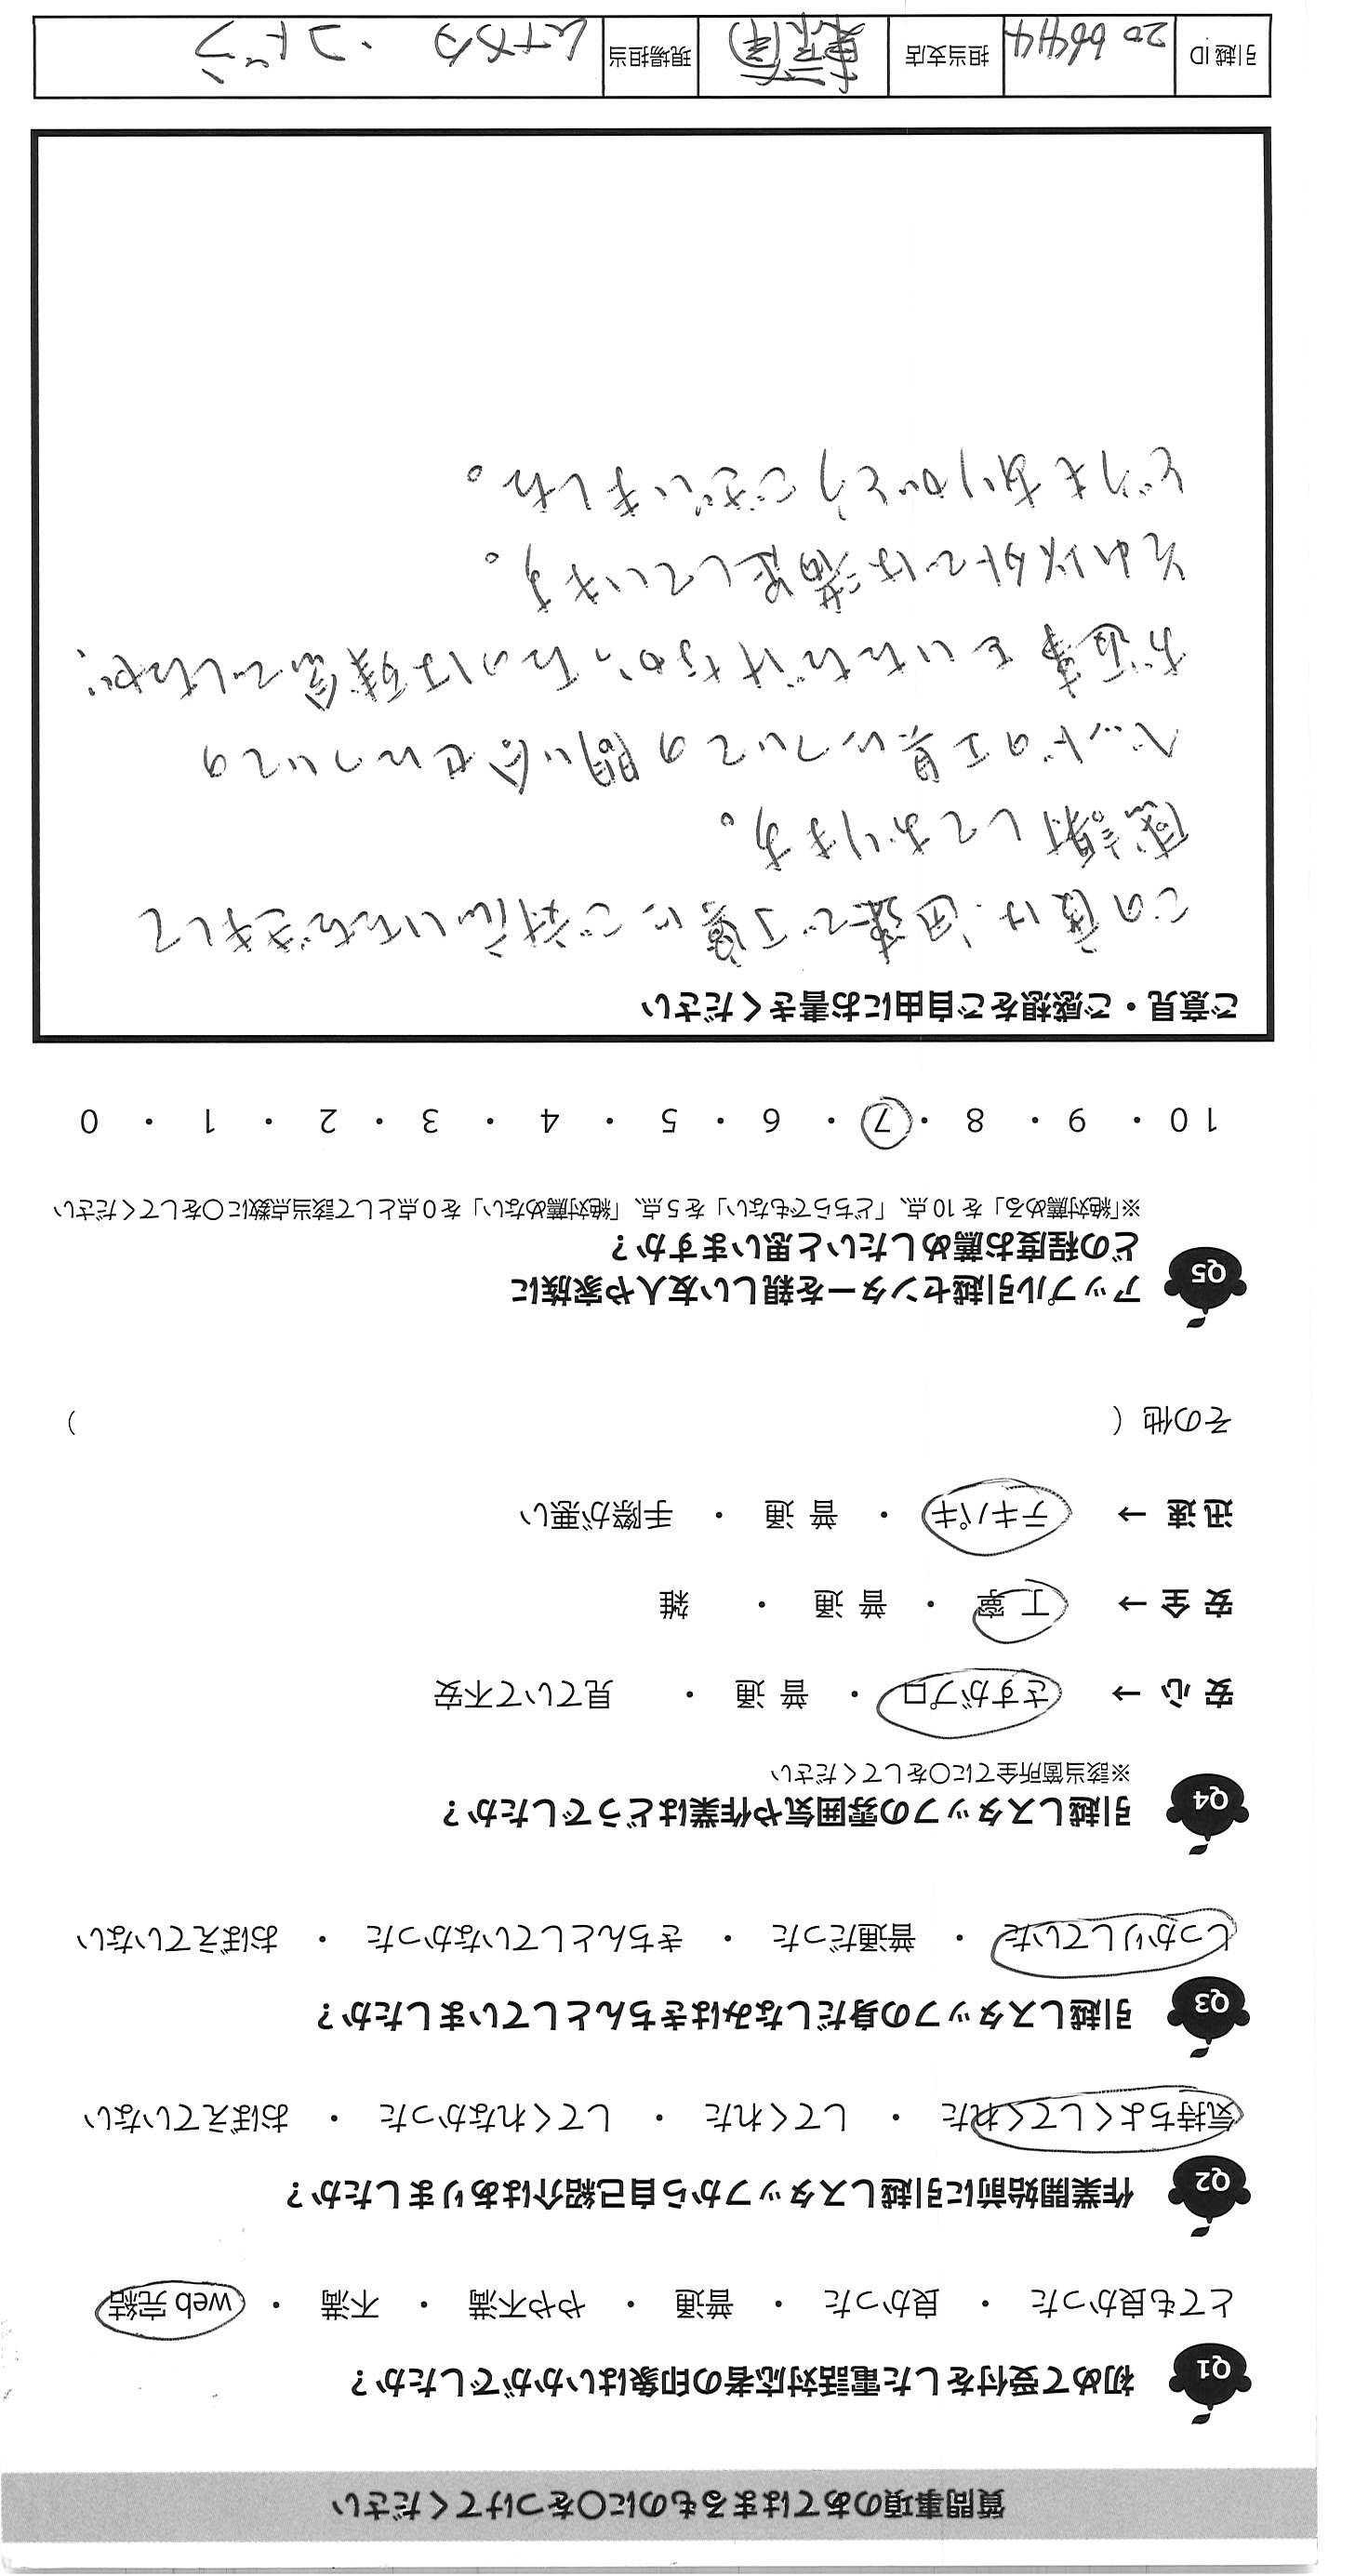 質問事項のあてはまるものに〇をつけてください
Q1 初めて受付をした電話対応者の印象はいかがでしたか？
とても良かった ・ 良かった ・ 普通 ・ やや不満 ・ 不満 ・ web 完結
Q2 作業開始前に引越しスタッフから自己紹介はありましたか？
気持ちよくしてくれた ・ してくれた ・ してくれなかった ・ おぼえていない
Q3 引越しスタッフの身だしなみはきちんとしていましたか？
しっかりしていた ・ 普通だった ・ きちんとしていなかった ・ おぼえていない
Q4 引越しスタッフの雰囲気や作業はどうでしたか？
※該当箇所全てに〇をしてください
安心 → さすがプロ ・ 普通 ・ 見ていて不安
安全 → 丁寧 ・ 普通 ・ 雑
迅速 → テキパキ ・ 普通 ・ 手際が悪い
その他 （ ）
Q5 アップル引越センターを親しい友人や家族に
どの程度お薦めしたいと思いますか？
※「絶対薦める」を 10 点、「どちらでもない」を 5 点、「絶対薦めない」を 0 点として該当点数に〇をしてください
10 ・ 9 ・ 8 ・ 7 ・ 6 ・ 5 ・ 4 ・ 3 ・ 2 ・ 1 ・ 0
ご意見・ご感想をご自由にお書きください
この度は、迅速で丁寧にご対応いただきまして
感謝しております。
ベッドの工賃についての問い合せについての
お返事をいただけなかったのは残念でしたが、
それ以外では満足しています。
どうもありがとうございました。
引越 ID 2066444 担当支店 東京南 現場担当 ・コドラ